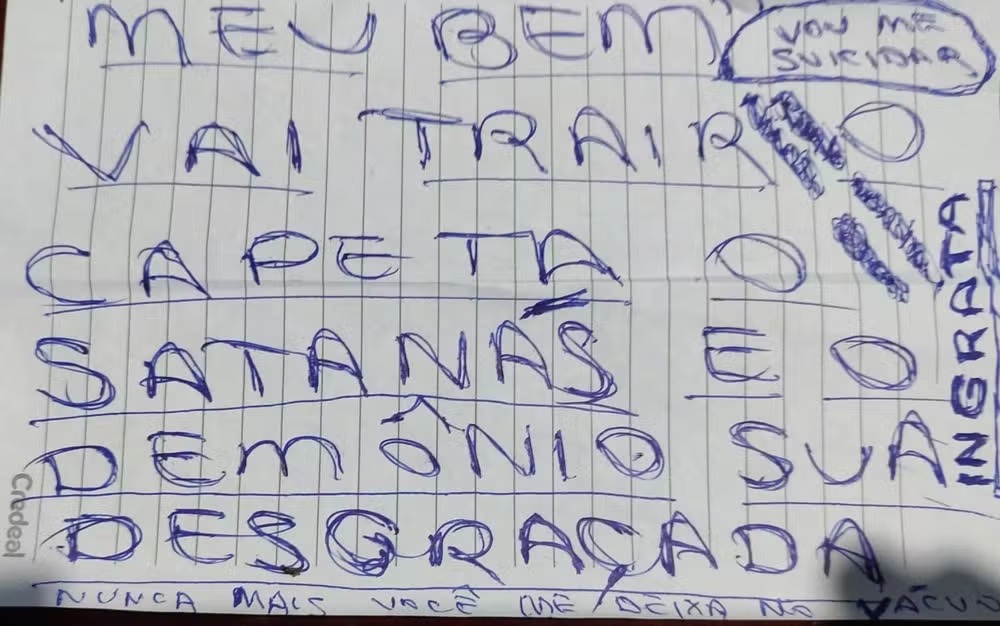 MEU BEM
VOU ME
SUICIDAR
VAI TRAIR O
CAPETA O
SATANÁS E O
DEMÔNIO SUA
DESGRAÇADA
INGRATA
NUNCA MAIS VOCÊ ME DEIXA NO VÁCUO
Credeal